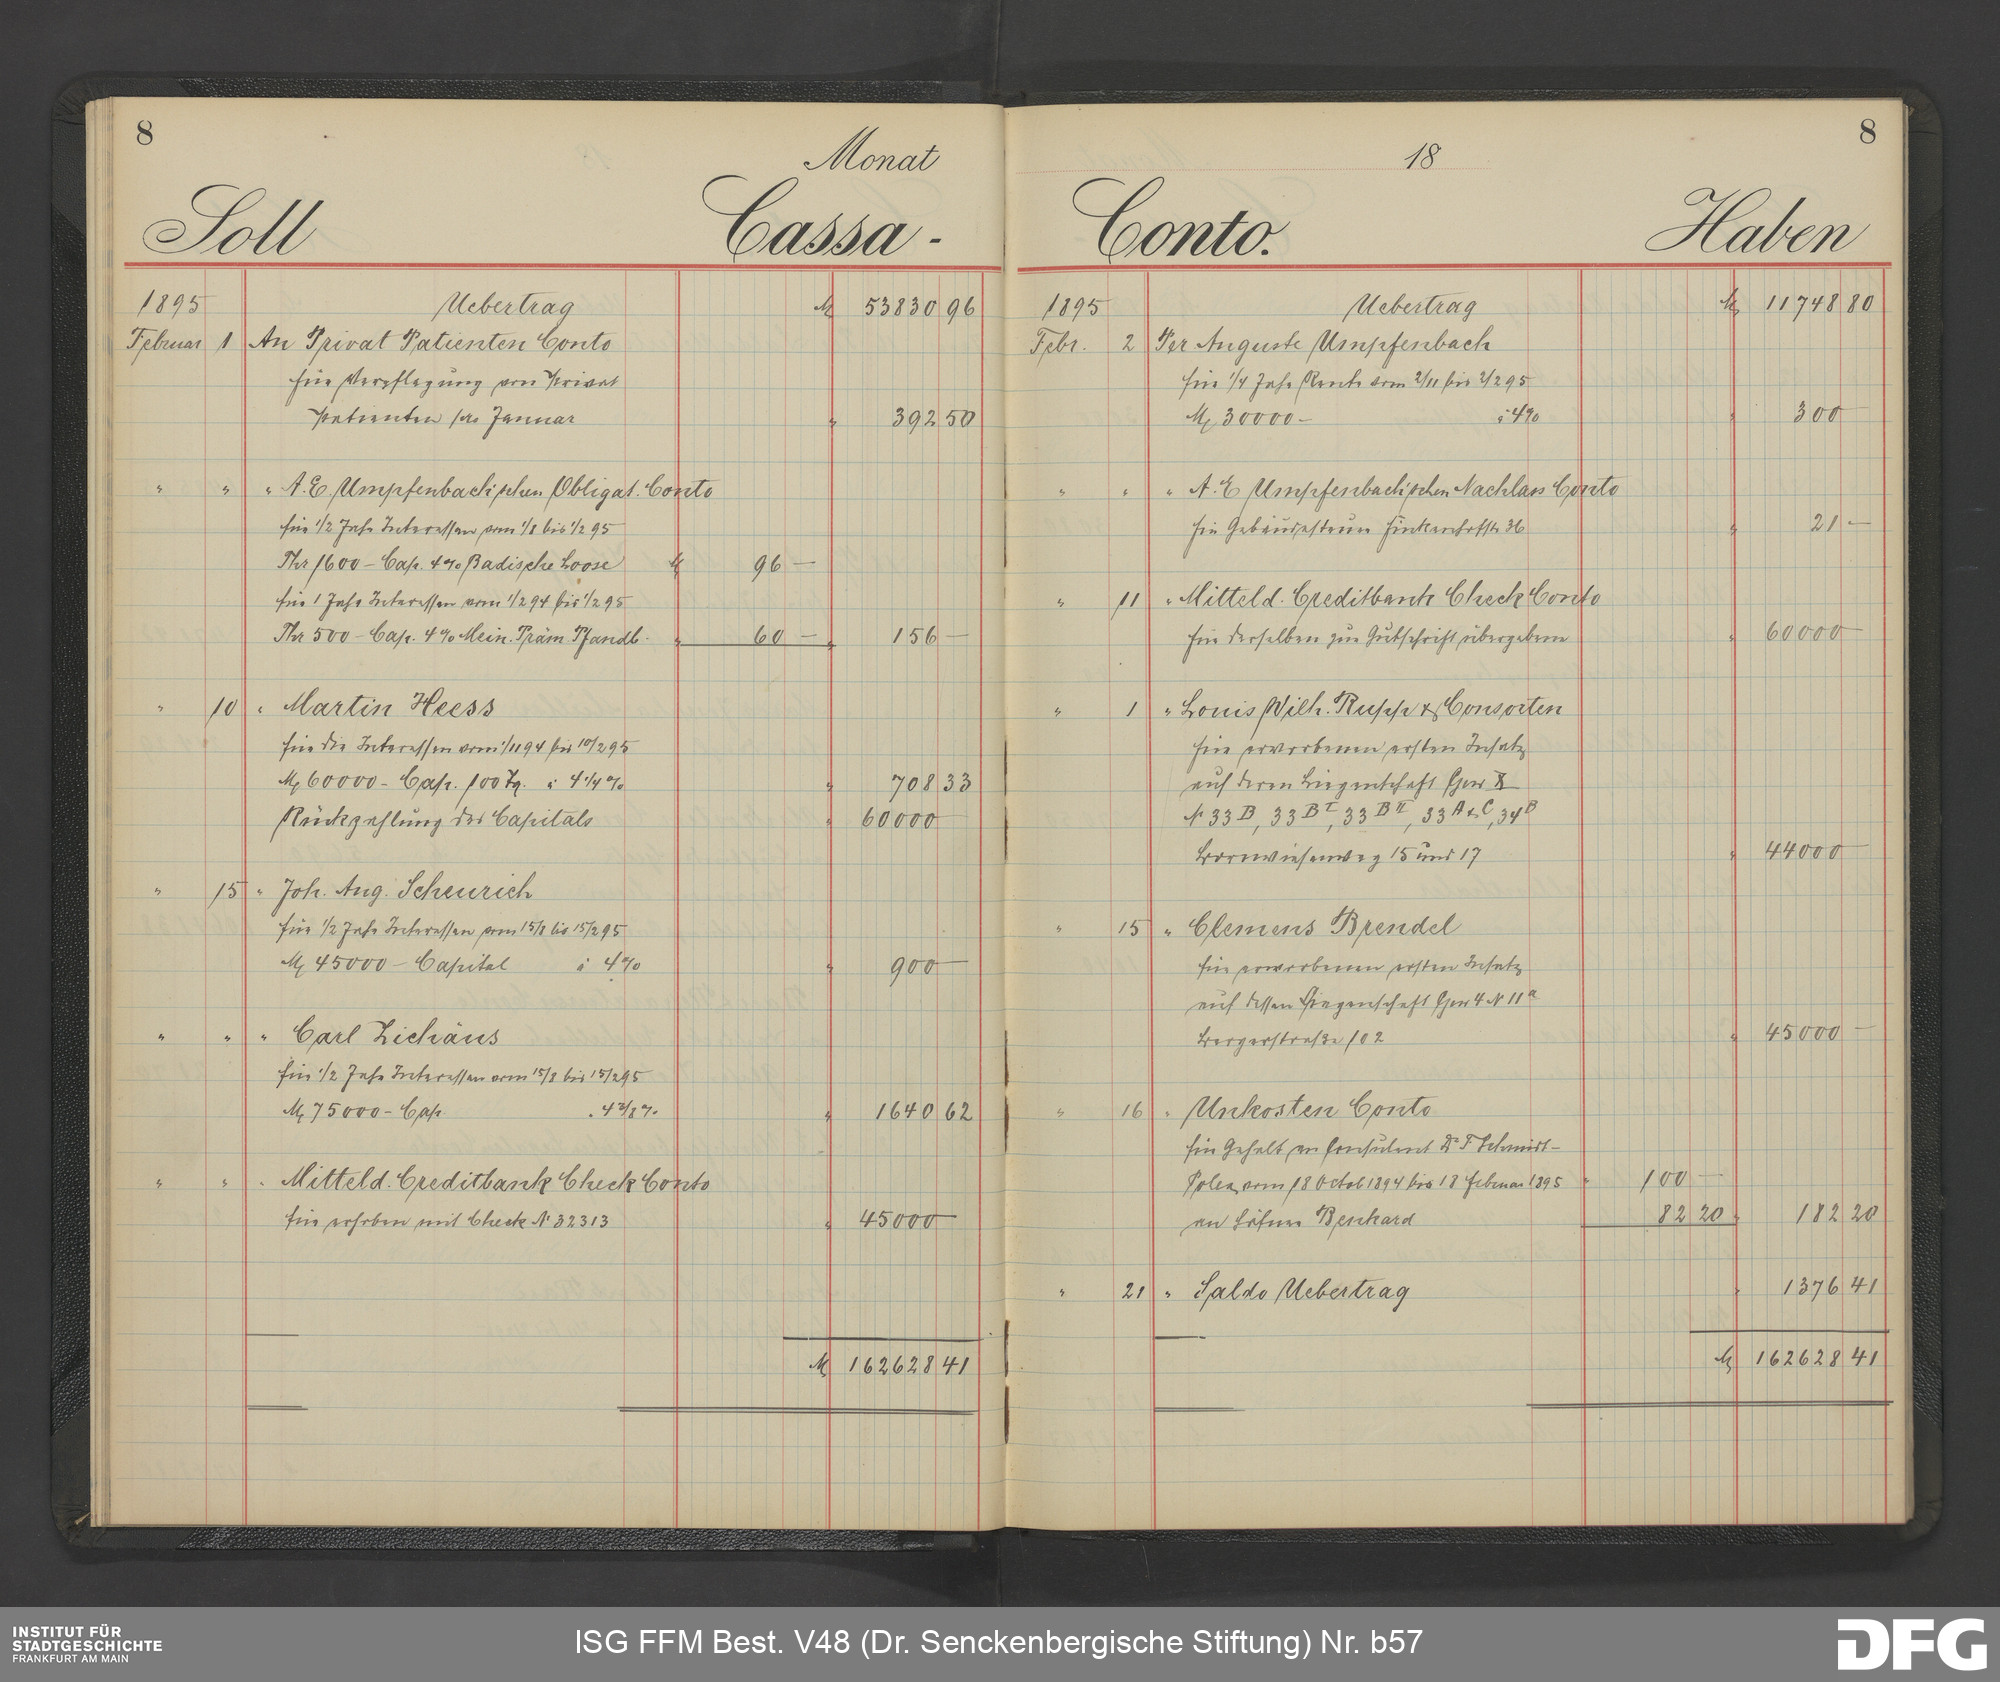 8
Monat
Soll Cassa -
1895 Uebertrag M 53830 96
Februar 1 An Privat Patienten Conto
für Verpflegung von Privat
patienten pro Januar " 392 50
" " " A. E. Umpfenbach'schen Obligat. Conto
für 1/2 Jahr Interessen vom 1/8 bis 1/2 95
Thr 1600 – Cap. 4% Badische Loose M 96 —
für 1 Jahr Interessen vom 1/2 94 bis 1/2 95
Thr 500 – Cap. 4% Mein. Präm Pfandb. " 60 — " 156 —
" 10 " Martin Heess
für die Interessen vom 1/11 94 bis 10/2 95
M 60000 – Cap. 100 Tg. à 4 1/4 % " 708 33
Rückzahlung des Capitals " 60000 —
" 15 " Joh. Aug. Scheurich
für 1/2 Jahr Interessen vom 15/8 bis 15/2 95
M 45000 – Capital à 4% " 900 —
" " " Carl Zichäus
für 1/2 Jahr Interessen vom 15/8 bis 15/2 95
M 75000 – Cap. " 4 3/8 % " 1640 62
" " " Mitteld. Creditbank Check Conto
für erhoben mit Check No 32313 " 45000 —
M 162628 41
8
18
Conto. Haben
1895 Uebertrag M 11748 80
Febr. 2 Per Auguste Umpfenbach
für 1/4 Jahr Rente vom 2/11 bis 2/2 95
M 30000 – à 4% " 300 —
" " " A. E. Umpfenbach'schen Nachlass Conto
für Gebäudesteuer Finkenhofstr 36 " 21 —
" 11 " Mitteld. Creditbank Check Conto
für derselben zur Gutschrift übergeben " 60000 —
" 1 " Louis Wilh. Rupp & Consorten
für erworbenen ersten Insatz
auf deren Liegenschaft Gew
No 33 B, 33 B I, 33 B II, 33 A & C, 34 B
Bornwiesenweg 15 und 17 " 44000 —
" 15 " Clemens Brendel
für erworbenen ersten Insatz
auf dessen Liegenschaft Gew 4 No 11 a
Bergerstraße 102 " 45000 —
" 16 " Unkosten Conto
für Gehalt an Consulent Dr F. Schmidt-
Polex vom 18 Octob 1894 bis 18 Februar 1895 " 100 —
an Löhne Benkard 82 20 " 182 20
" 21 " Saldo Uebertrag " 1376 41
M 162628 41
INSTITUT FÜR
STADTGESCHICHTE
FRANKFURT AM MAIN
ISG FFM Best. V48 (Dr. Senckenbergische Stiftung) Nr. b57
DFG